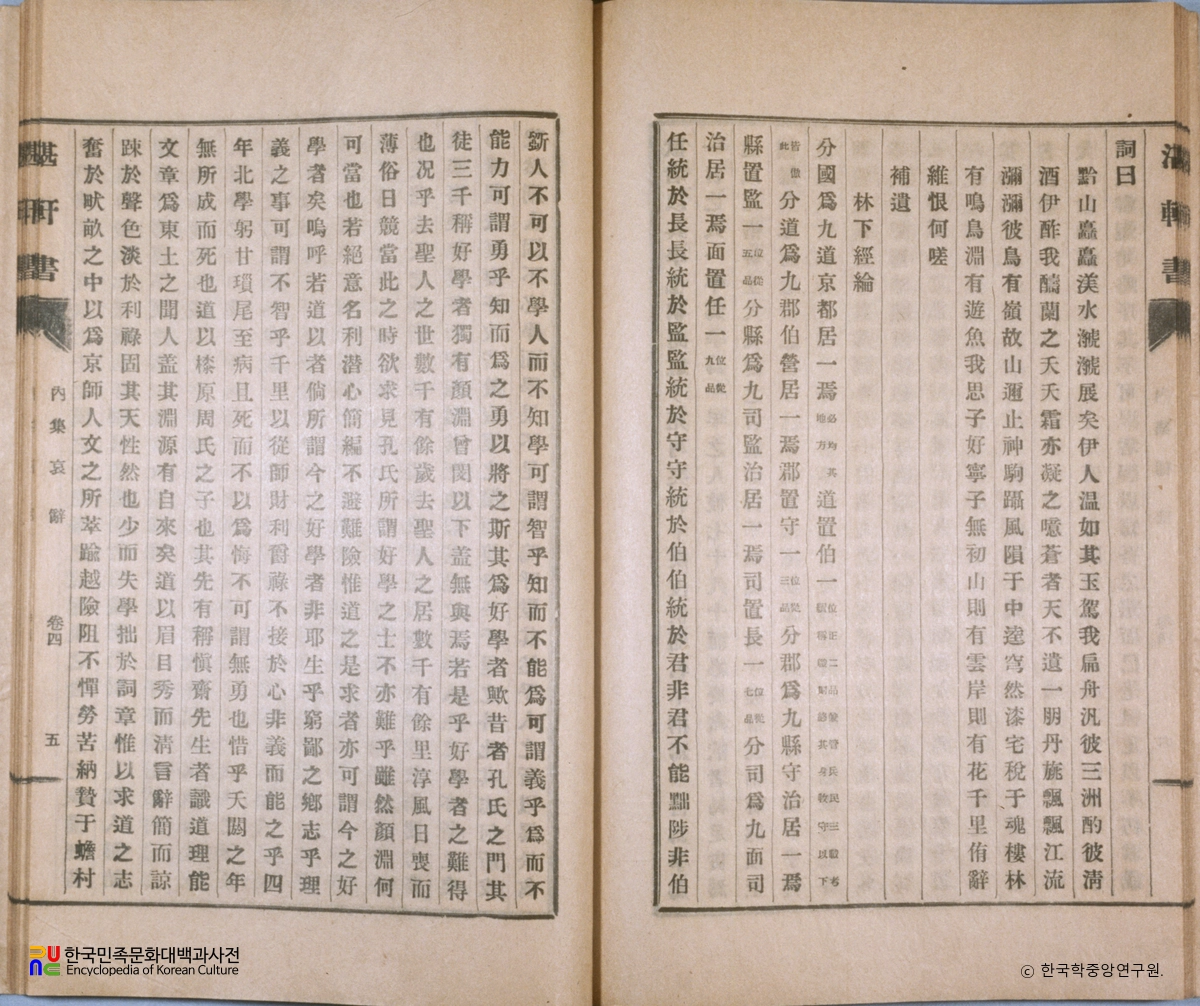 湛軒書
詞曰
黔山矗矗渼水 展矣伊人温如其玉駕我扁舟汎彼三洲酌彼淸
酒伊酢我醻蘭之夭夭霜亦凝之噫蒼者天不遺一朋丹旐飄飄江流
瀰瀰彼鳥有嶺故山邇止神駒躡風隕于中逵穹然漆宅稅于魂樓林
有鳴鳥淵有遊魚我思子好寧子無初山則有雲岸則有花千里侑辭
維恨何嗟
補遺
林下經綸
分國爲九道京都居一焉必均其地方道置伯一位正二品
皆倣此分道爲九郡伯營居一焉郡置守一位從三品分郡爲九縣守治居一焉
縣置監一位從五品分縣爲九司監治居一焉司置長一位從七品分司爲九面司
治居一焉面置任一位從九品
任統於長長統於監監統於守守統於伯伯統於君非君不能黜陟非伯
斵人不可以不學人而不知學可謂智乎知而不能爲可謂義乎爲而不
能力可謂勇乎知而爲之勇以將之斯其爲好學者歟昔者孔氏之門其
徒三千稱好學者獨有顏淵曾閔以下盖無與焉若是乎好學者之難得
也况乎去聖人之世數千有餘歲去聖人之居數千有餘里淳風日喪而
薄俗日競當此之時欲求見孔氏所謂好學之士不亦難乎雖然顏淵何
可當也若絕意名利潜心簡編不避難險惟道之是求者亦可謂今之好
學者矣嗚呼若道以者倘所謂今之好學者非耶生乎窮鄙之鄕志乎理
義之事可謂不智乎千里以從師財利爵祿不接於心非義而能之乎四
年北學躬甘瑣尾至病且死而不以爲悔不可謂無勇也惜乎夭閼之年
無所成而死也道以桼原周氏之子也其先有稱愼齋先生者識道理能
文章爲東土之聞人盖其淵源有自來矣道以眉目秀而清言辭簡而諒
踈於聲色淡於利祿固其天性然也少而失學拙於詞章惟以求道之志
奮於畎畝之中以爲京師人文之所萃踰越險阻不憚勞苦納贄于蟾村
湛軒書 內集 哀辭 卷四 五
한국민족문화대백과사전
Encyclopedia of Korean Culture
© 한국학중앙연구원.